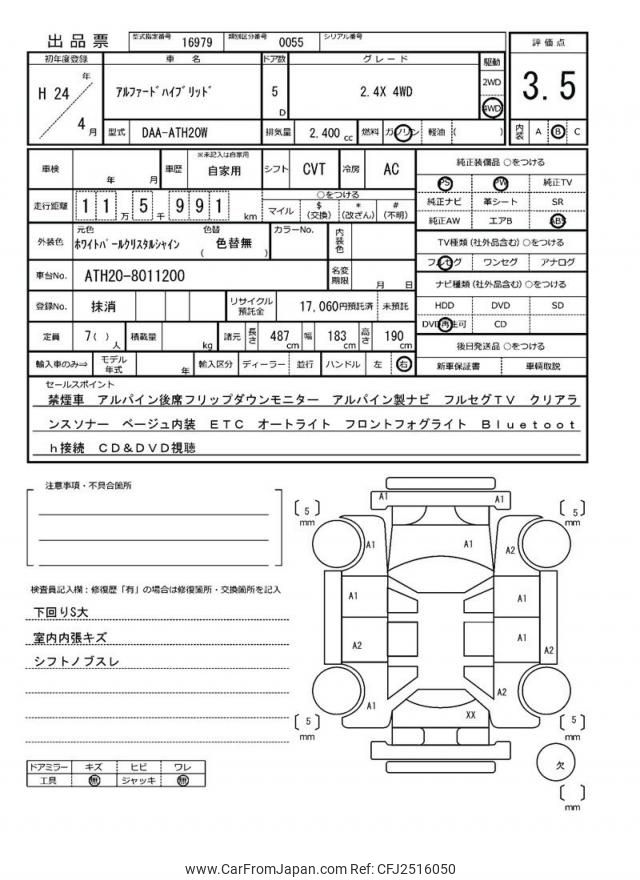 出品票 型式指定番号 16979 類別区分番号 0055 シリアル番号
初年度登録 車名 ドア数 グレード 駆動 評価点
H 24 年 4 月 アルファードハイブリッド 5 D 2.4X 4WD 2WD 4WD 3.5
型式 DAA-ATH20W 排気量 2,400 cc 燃料 ガソリン 軽油 ( ) 内装 A B C
車検 年 月 車歴 ※未記入は自家用 自家用 シフト CVT 冷房 AC 純正装備品 ○をつける
PS PW 純正TV
走行距離 11万5千991km ○をつける
マイル $(交換) *(改ざん) #(不明)
純正ナビ 革シート SR
純正AW エアB ABS
外装色 元色 ホワイトパールクリスタルシャイン 色替 ( 色替無 ) カラーNo. 内装色
TV種類(社外品含む)○をつける
フルセグ ワンセグ アナログ
車台No. ATH20-8011200 名変期限 月 日
ナビ種類(社外品含む)○をつける
登録No. 抹消 リサイクル預託金 17,060円預託済 未預託
HDD DVD SD
DVD再生可 CD
定員 7( )人 積載量 kg 諸元 長さ 487cm 幅 183cm 高さ 190cm
後日発送品 ○をつける
輸入車のみ⇒ モデル年式 年 輸入区分 ディーラー 並行 ハンドル 左 右
新車保証書 車輌取説
セールスポイント
禁煙車 アルパイン後席フリップダウンモニター アルパイン製ナビ フルセグTV クリアラ
ンスソナー ベージュ内装 ETC オートライト フロントフォグライト Bluetoot
h接続 CD&DVD視聴
注意事項・不具合箇所
検査員記入欄:修復歴「有」の場合は修復箇所・交換箇所を記入
下回りS大
室内内張キズ
シフトノブスレ
ドアミラー キズ ヒビ ワレ
工具 無 ジャッキ 無
A1 A1
5 mm 5 mm
A1 A1 A2
A1 A1
A2 A1 A2
A1 A2
XX
5 mm 5 mm
欠
mm
www.CarFromJapan.com Ref: CFJ2516050